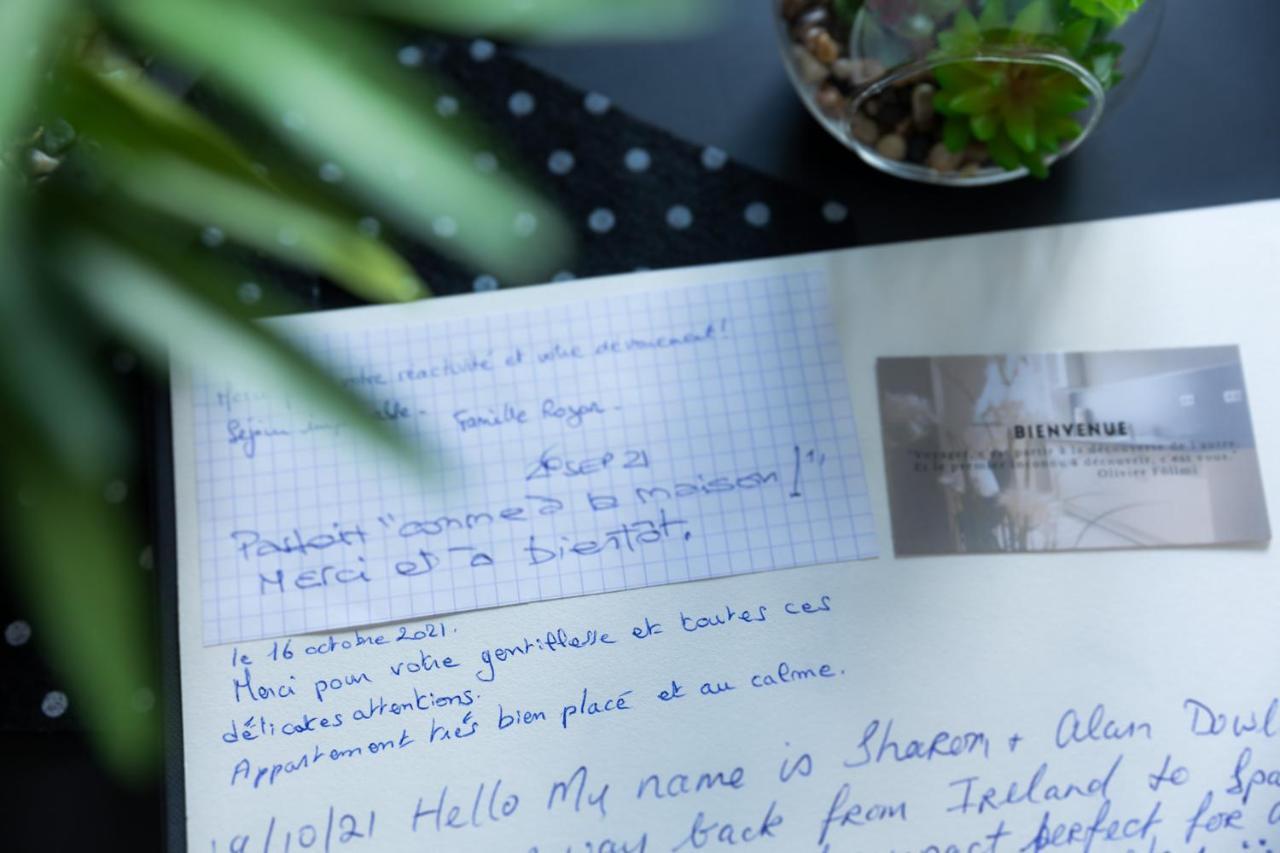 votre réactivité et votre dévouement!
Séjour Famille Rozan.
26 SEP 21
Parfait "comme à la maison!"
Merci et à bientôt.
le 16 octobre 2021.
Merci pour votre gentillesse et toutes ces
délicates attentions.
Appartement très bien placé et au calme.
19/10/21 Hello My name is Sharon + Alan Dowl
way back from Ireland to Spa
perfect for a
BIENVENUE
"Voyager, c'est partir à la découverte de l'autre.
Et le premier inconnu à découvrir, c'est vous."
Olivier Föllmi